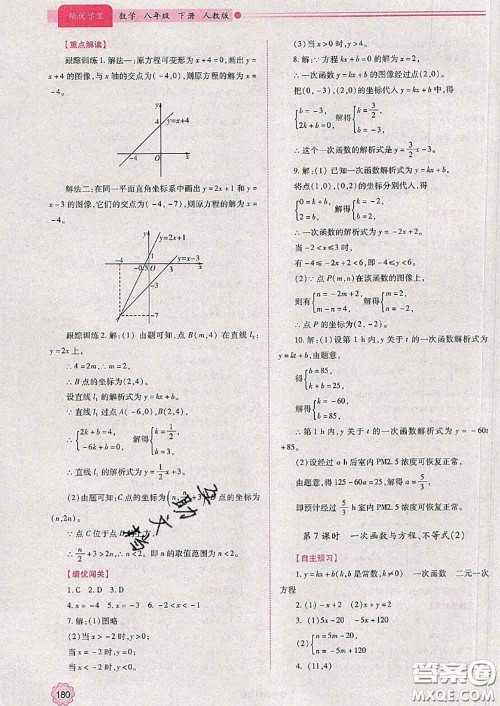 绩优学案 数学 八年级 下册 人教版
【重点解读】
跟踪训练1.解法一:原方程可变形为x+4=0,画出y=
x+4的图像,与x轴的交点为(-4,0),则原方程的解为x=
-4.
y
y=x+4
4
-4 0 x
解法二:在同一平面直角坐标系中画出y=2x+1和y=
x-3的图像,它们的交点为(-4,-7),则原方程的解为x=
-4.
y
y=2x+1
y=x-3
1
-4 -0.5 0 3 x
-7
跟踪训练2.解:(1)由题可知,点B(m,4)在直线l₂:
y=2x上,
∴4=2m,∴m=2,
∴B点的坐标为(2,4).
设直线l₁的解析式为y=kx+b.
∵直线l₁过点A(-6,0),B(2,4),
∴{2k+b=4, -6k+b=0, 解得{k=1/2, b=3.
∴直线l₁的解析式为y=1/2x+3.
(2)由题可知:C点的坐标为(n,n/2+3),D点的坐标为
(n,2n).
∵点C位于点D上方,
∴n/2+3>2n,∴n<2,即n的取值范围为n<2.
【绩优闯关】
1.C 2.D 3.D
4.x=-4 5.x=-4 6.-2<x<-1
7.解:(1)图略
(2)当x>-2时,y>0;
当x=-2时,y=0;
当x<-2时,y<0.
180
(3)当x>0时,y>4.
8.解:∵方程kx+b=0的解为x=-2,
∴一次函数y=kx+b的图像经过点(-2,0).
把(0,-3),(2,0)的坐标代入y=kx+b中,得
{b=-3, 2k+b=0, 解得{k=3/2, b=-3.
∴这个一次函数的解析式是y=3/2x-3.
9.解:(1)已知一次函数解析式为y=kx+b,
将点(1,0),(0,2)的坐标分别代入,得
{0=k+b, 2=b, 解得{k=-2, b=2.
∴一次函数的解析式为y=-2x+2.
当-2<x≤3时,
有-4≤-2x+2<6,即-4≤y<6.
(2)∵点P(m,n)在该函数的图像上,
则有{n=-2m+2, m-n=4, 解得{m=2, n=-2.
∴点P的坐标为(2,-2).
10.解:(1)设第1 h内,y关于t的一次函数解析式为
y=kt+b,由题意,
得{b=85, k+b=25,
解得{k=-60, b=85,
∴第1 h内,y关于t的一次函数解析式为y=-60t
+85.
(2)设经过a h后室内PM2.5浓度可恢复正常.
由题意,得125-60a=25,解得a=5/3.
即预计经过5/3 h室内PM2.5浓度可恢复正常.
第7课时 一次函数与方程、不等式(2)
【自主预习】
1.y=kx+b(k,b是常数,k≠0) 一次函数 二元一次
方程
2.(1)-x+2 (2)x+y=2
3.(1)5x-20 -5x+20 (2){
4.(11,4)
答案圈
MXQE.COM